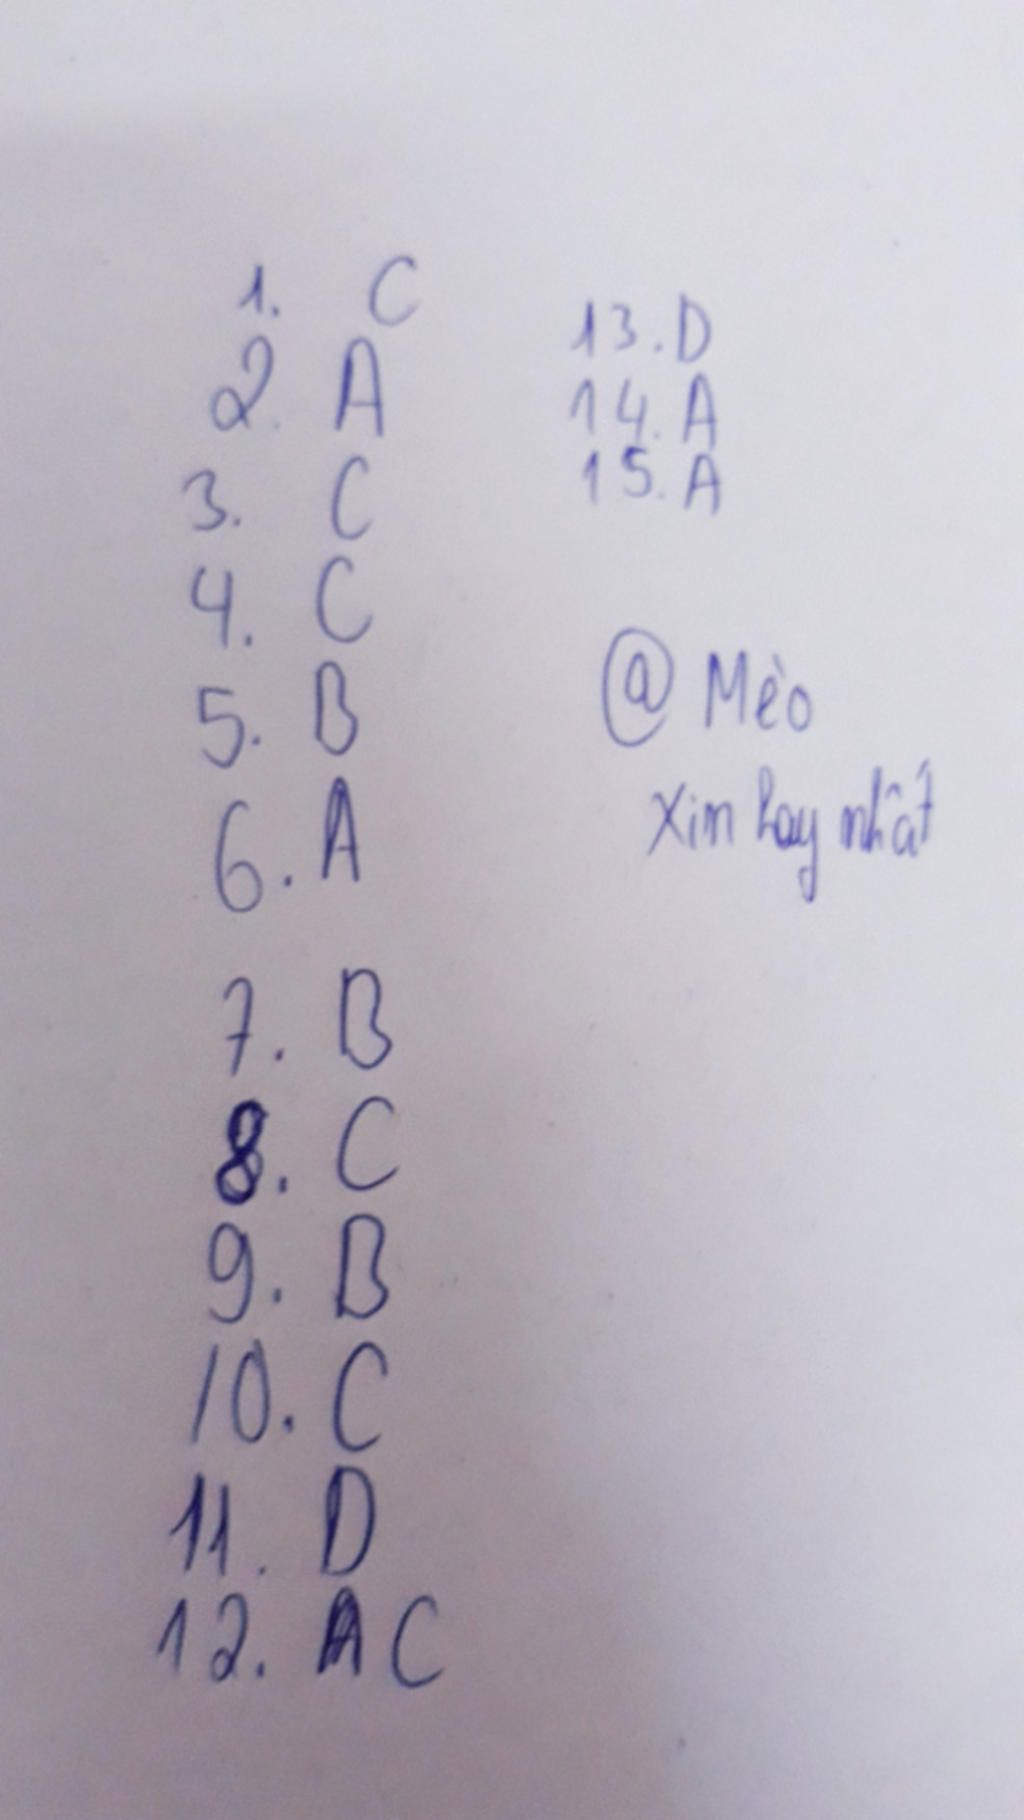 1. C
2. A
3. C
4. C
5. B
6. A
7. B
8. C
9. B
10. C
11. D
12. A C
13. D
14. A
15. A
@ Mèo
Xin hay nhất